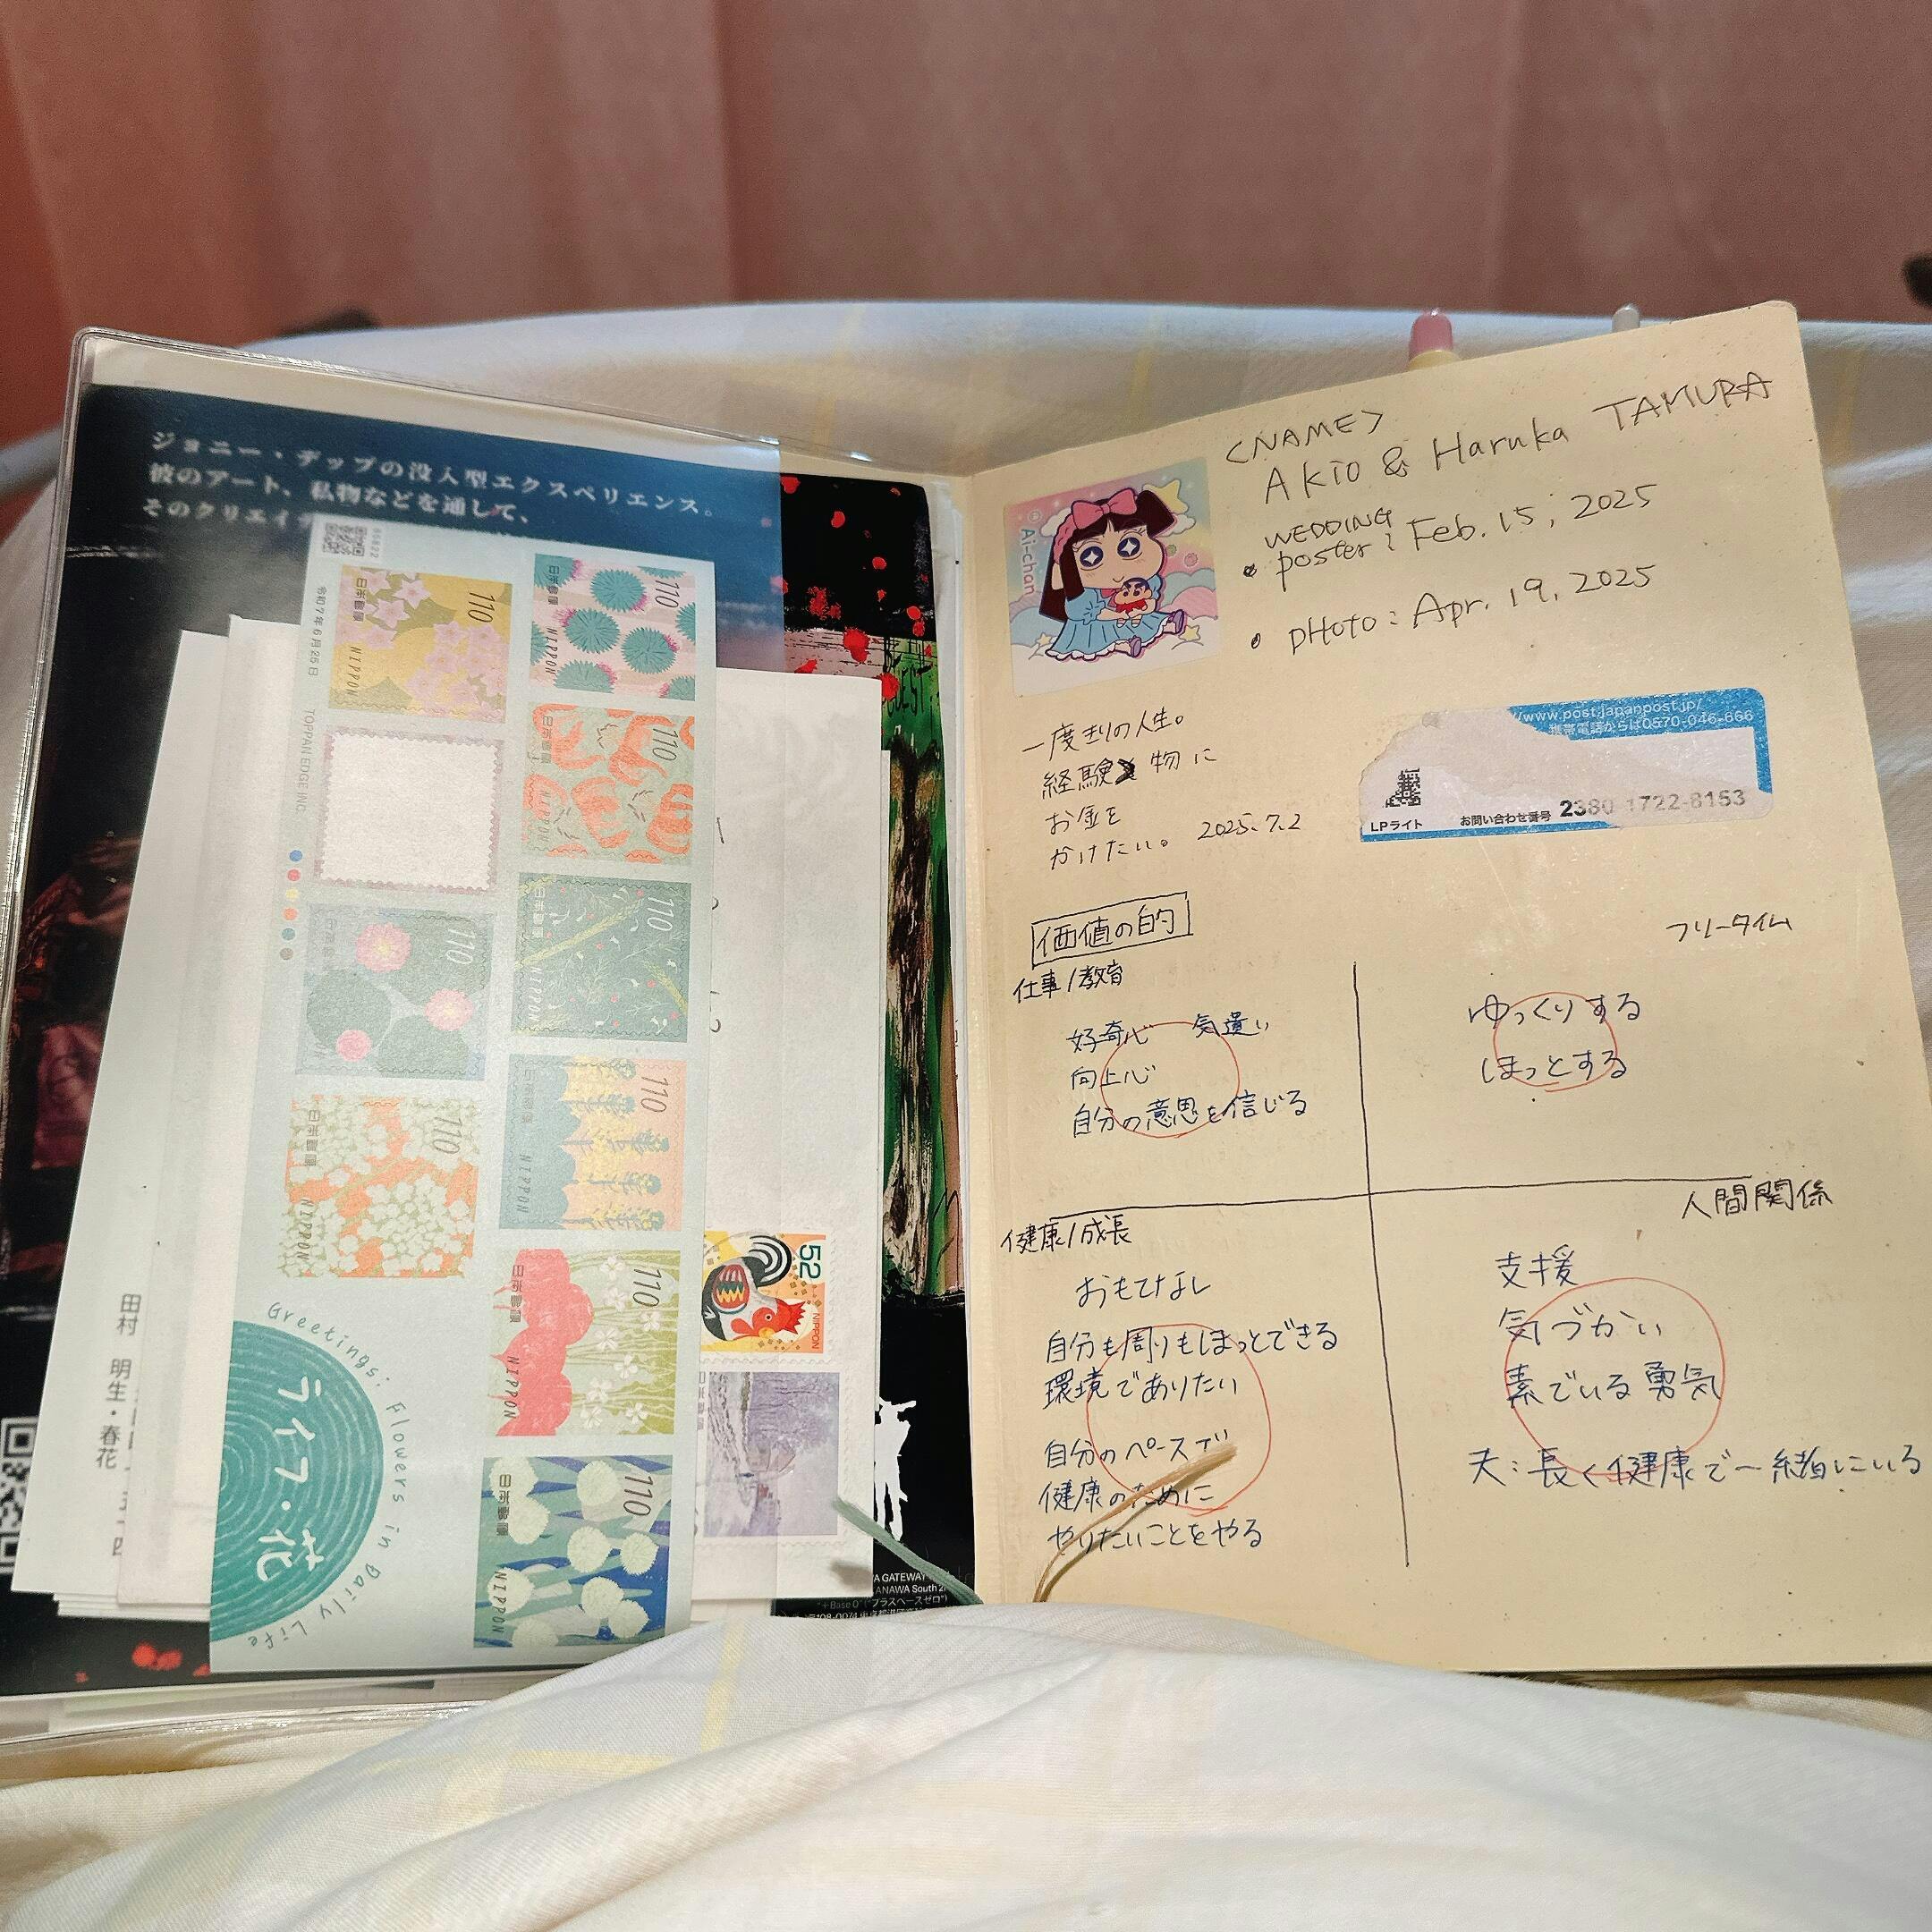 ジョニー・デップの没入型エクスペリエンス。
彼のアート、私物などを通して、
そのクリエイ
令和7年6月25日
TOPPAN EDGE INC.
110
日本郵便
NIPPON
110
日本郵便
NIPPON
110
日本郵便
NIPPON
110
日本郵便
110
日本郵便
NIPPON
110
日本郵便
NIPPON
110
日本郵便
NIPPON
110
日本郵便
NIPPON
110
日本郵便
NIPPON
Greetings: Flowers in Daily Life
ライフ・花
52
NIPPON
田村 明生・春花
GATEWAY
ANAWA South
"+Base 0" ("プラスベースゼロ")
108-0074
<NAME>
Akio & Haruka TAMURA
WEDDING
• poster: Feb. 15, 2025
• pHoto: Apr. 19, 2025
Ai-chan
一度きりの人生。
経験 物に
お金を
かけたい。 2025.7.2
www.post.japanpost.jp/
携帯電話からは0570-046-666
LPライト お問い合わせ番号 2380-1722-8153
価値の的
仕事/教育
好奇心 気遣い
向上心
自分の意思を信じる
フリータイム
ゆっくりする
ほっとする
健康/成長
おもてなし
自分も周りもほっとできる
環境でありたい
自分のペースで
健康のために
やりたいことをやる
人間関係
支援
気づかい
素でいる勇気
夫:長く健康で一緒にいる